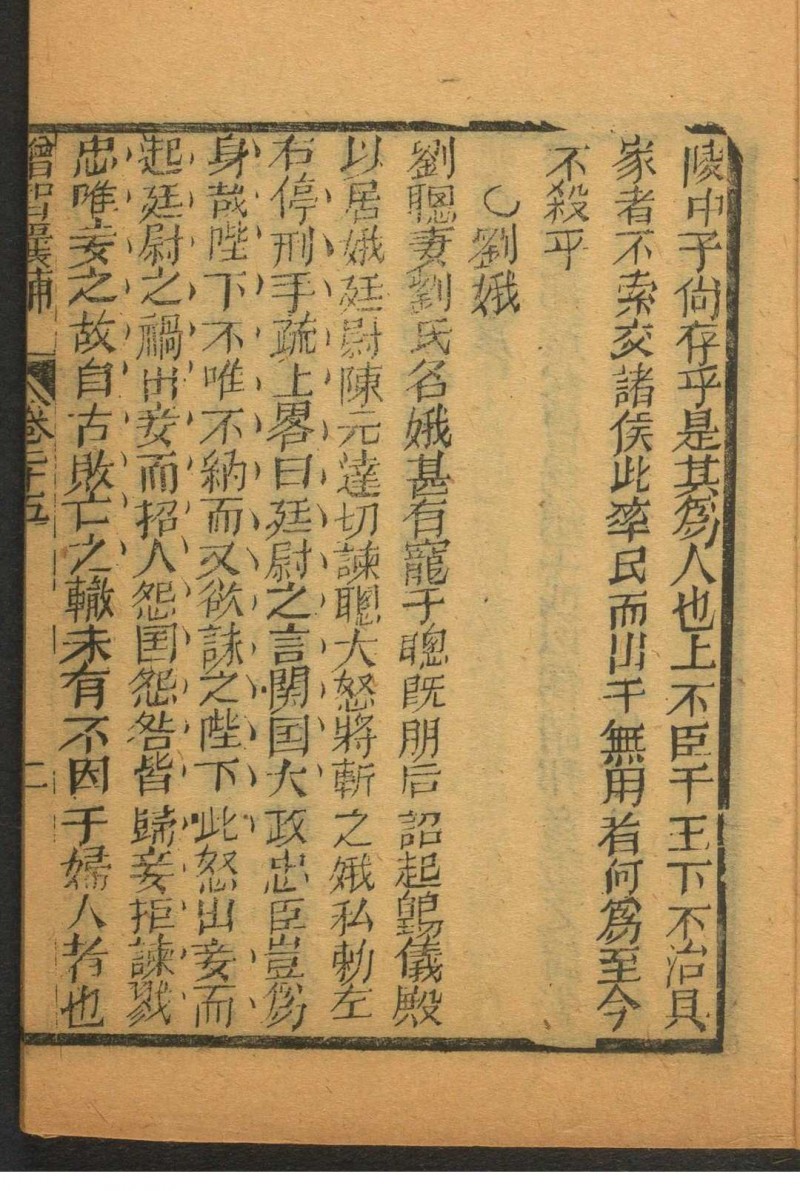 陵仲子尙存乎是其爲人也上不臣于王下不治其
家者不索交諸侯此率民而出于無用者何爲至今
不殺乎
劉娥
劉聰妻劉氏名娥甚有寵于聰旣冊后詔起䴉儀殿
以居娥廷尉陳元達切諫聰大怒將斬之娥私勅左
右停刑手疏上畧曰廷尉之言関囯大政忠臣豈爲
身哉陛下不唯不納而又欲誅之陛下此怒由妾而
起廷尉之禍由妾而招人怨囯怨咎皆歸妾拒諫戮
忠唯妾之故自古敗亡之轍未有不因于婦人者也
增智囊補 卷二十五 二